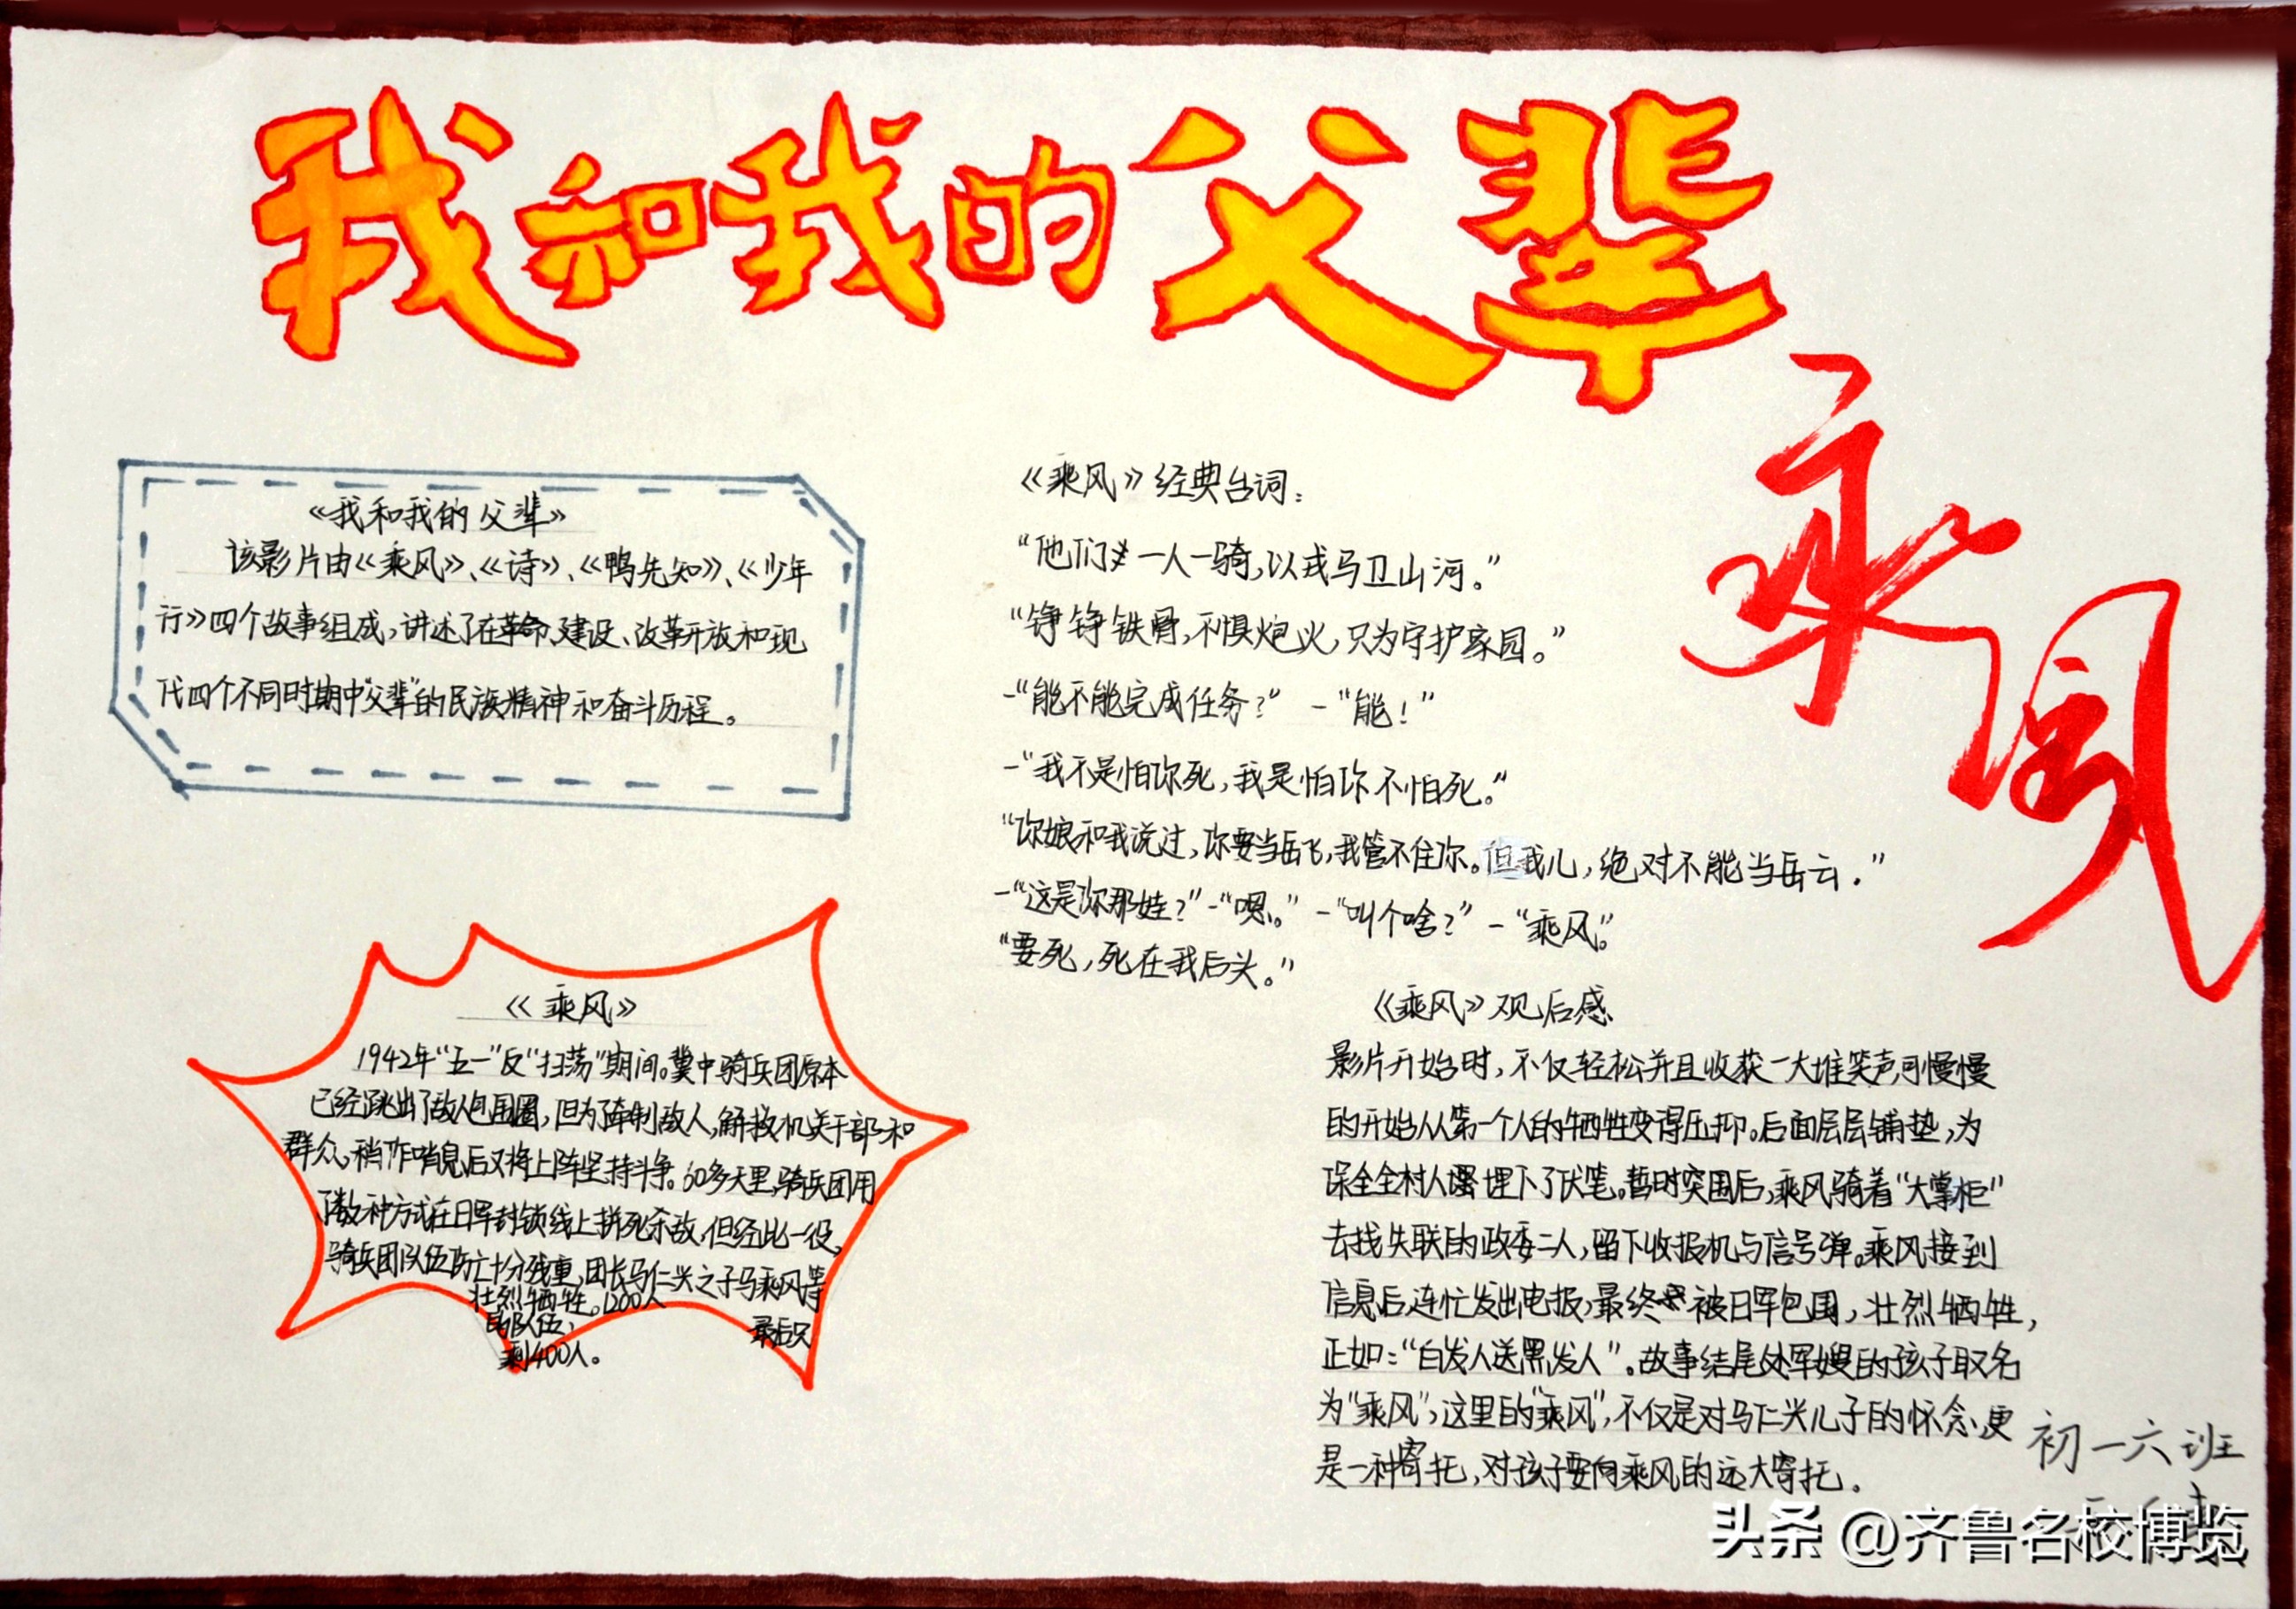 我和我的父辈
乘风
《我和我的父辈》
该影片由《乘风》、《诗》、《鸭先知》、《少年
行》四个故事组成，讲述了在革命、建设、改革开放和现
代四个不同时期中“父辈”的民族精神和奋斗历程。
《乘风》经典台词：
“他们 一人一骑，以戎马卫山河。”
“铮铮铁骨，不惧炮火，只为守护家园。”
-“能不能完成任务？” -“能！”
-“我不是怕你死，我是怕你不怕死。”
“你娘和我说过，你要当岳飞，我管不住你。但我儿，绝对不能当岳云．”
-“这是你那娃？”-“嗯。” -“叫个啥？” -“乘风。”
“要死，死在我后头。”
《乘风》
1942年“五一”反“扫荡”期间。冀中骑兵团原本
已经跳出了敌人包围圈，但为了牵制敌人，解救机关干部和
群众，稍作哨息后又将上阵坚持斗争。60多天里，骑兵团用
了数种方式在日军封锁线上拼死杀敌，但经此一役，
骑兵团队伍伤亡十分残重，团长马仁兴之子马乘风等
壮烈牺牲。1200人
的队伍，最后只
剩400人。
《乘风》观后感
影片开始时，不仅轻松并且收获一大堆笑声可慢慢
的开始从第一个人的牺牲变得压抑。后面层层铺垫，为
保全全村人 埋下了伏笔。暂时突围后，乘风骑着“大掌柜”
去找失联的政委二人，留下收报机与信号弹。乘风接到
信息后，连忙发出电报，最终 被日军包围，壮烈牺牲，
正如：“白发人送黑发人”。故事结尾处军嫂的孩子取名
为“乘风”，这里的“乘风”，不仅是对马仁兴儿子的怀念，更
是一种寄托，对孩子要向乘风的远大寄托。
初一六班
头条 @齐鲁名校博览